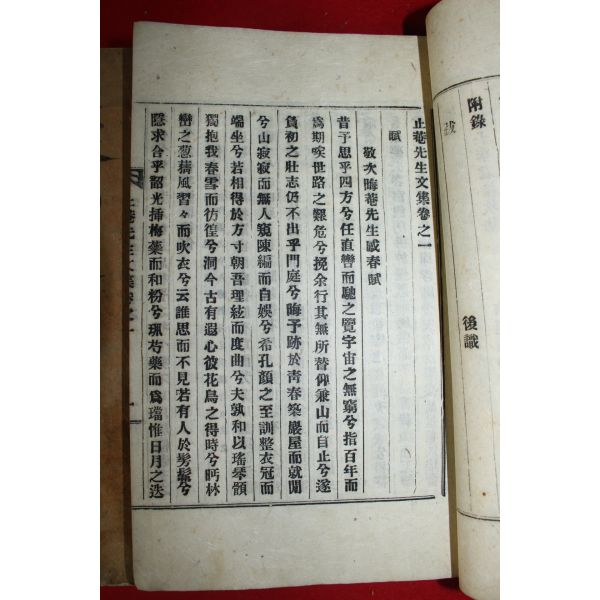 附錄
跋
後識
止菴先生文集卷之一
賦
敬次晦菴先生感春賦
昔予思乎四方兮任直轡而馳之覽宇宙之無窮兮指百年而
爲期唉世路之艱危兮挽余行其無所替仰兼山而自止兮遂
負初之壯志仍不出乎門庭兮晦予跡於靑春築巖屋而就閒
兮山寂寂而無人窺陳編而自娛兮希孔顔之至訓整衣冠而
端坐兮若相得於方寸朝吾理絃而度曲兮夫孰和以瑤琴顧
獨抱我春雪而彷徨兮洞今古有遐心彼花鳥之得時兮眄林
巒之葱蒨風習々而吹衣兮云誰思而不見若有人於髣髴兮
隱求合乎韶光揷梅藥而和粉兮珮芍藥而爲璫惟日月之迭
止菴先生文集卷之一
一